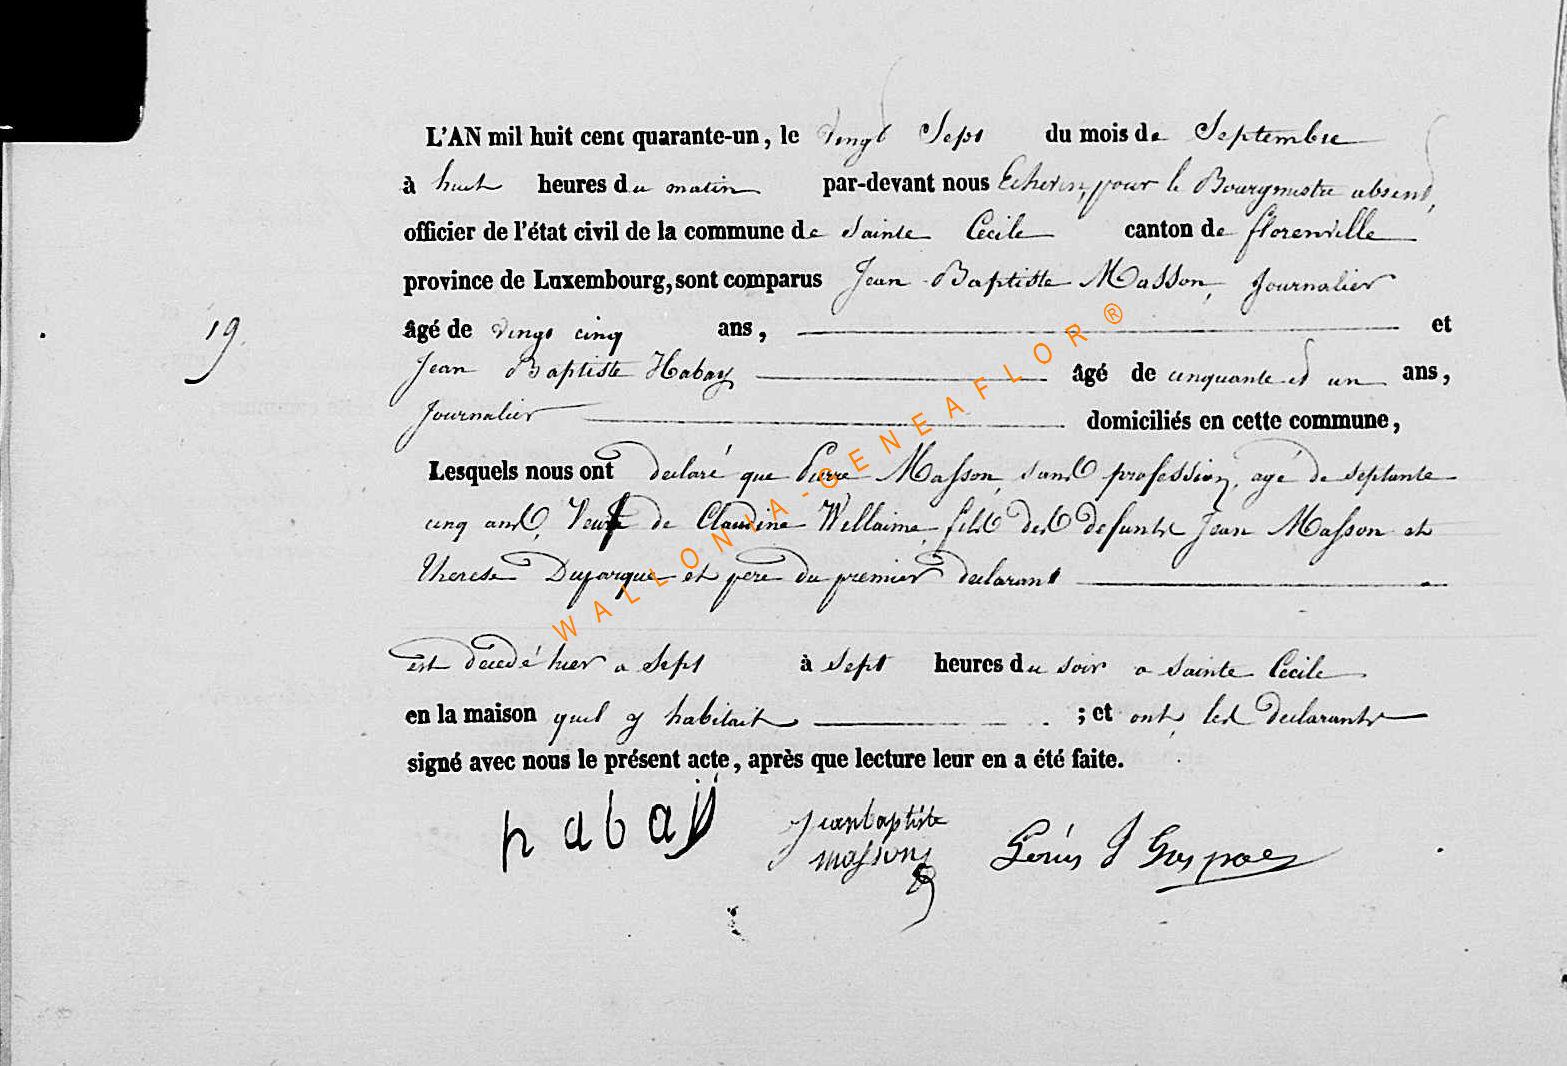 L'AN mil huit cent quarante-un, le vingt Sept du mois de Septembre
à huit heures du matin par-devant nous Echevin, pour le Bourgmestre absent,
officier de l'état civil de la commune de Sainte Cécile canton de florenville
province de Luxembourg, sont comparus Jean Baptiste Masson, Journalier
19. âgé de vingt cinq ans, et
Jean Baptiste Habay âgé de cinquante et un ans,
Journalier domiciliés en cette commune,
Lesquels nous ont declaré que Pierre Masson, sans profession, agé de septante
cinq ans, Veuf de Claudine Willaime, fils des defunts Jean Masson et
Therese Dujarque et pere du premier declarant
est decedé hier a sept à sept heures du soir a Sainte Cécile
en la maison quil y habitait ; et ont les declarants
signé avec nous le présent acte, après que lecture leur en a été faite.
habaÿ Jeanbaptiste Louis J Gaspar
masson
WALLONIA-GENEAFLOR®